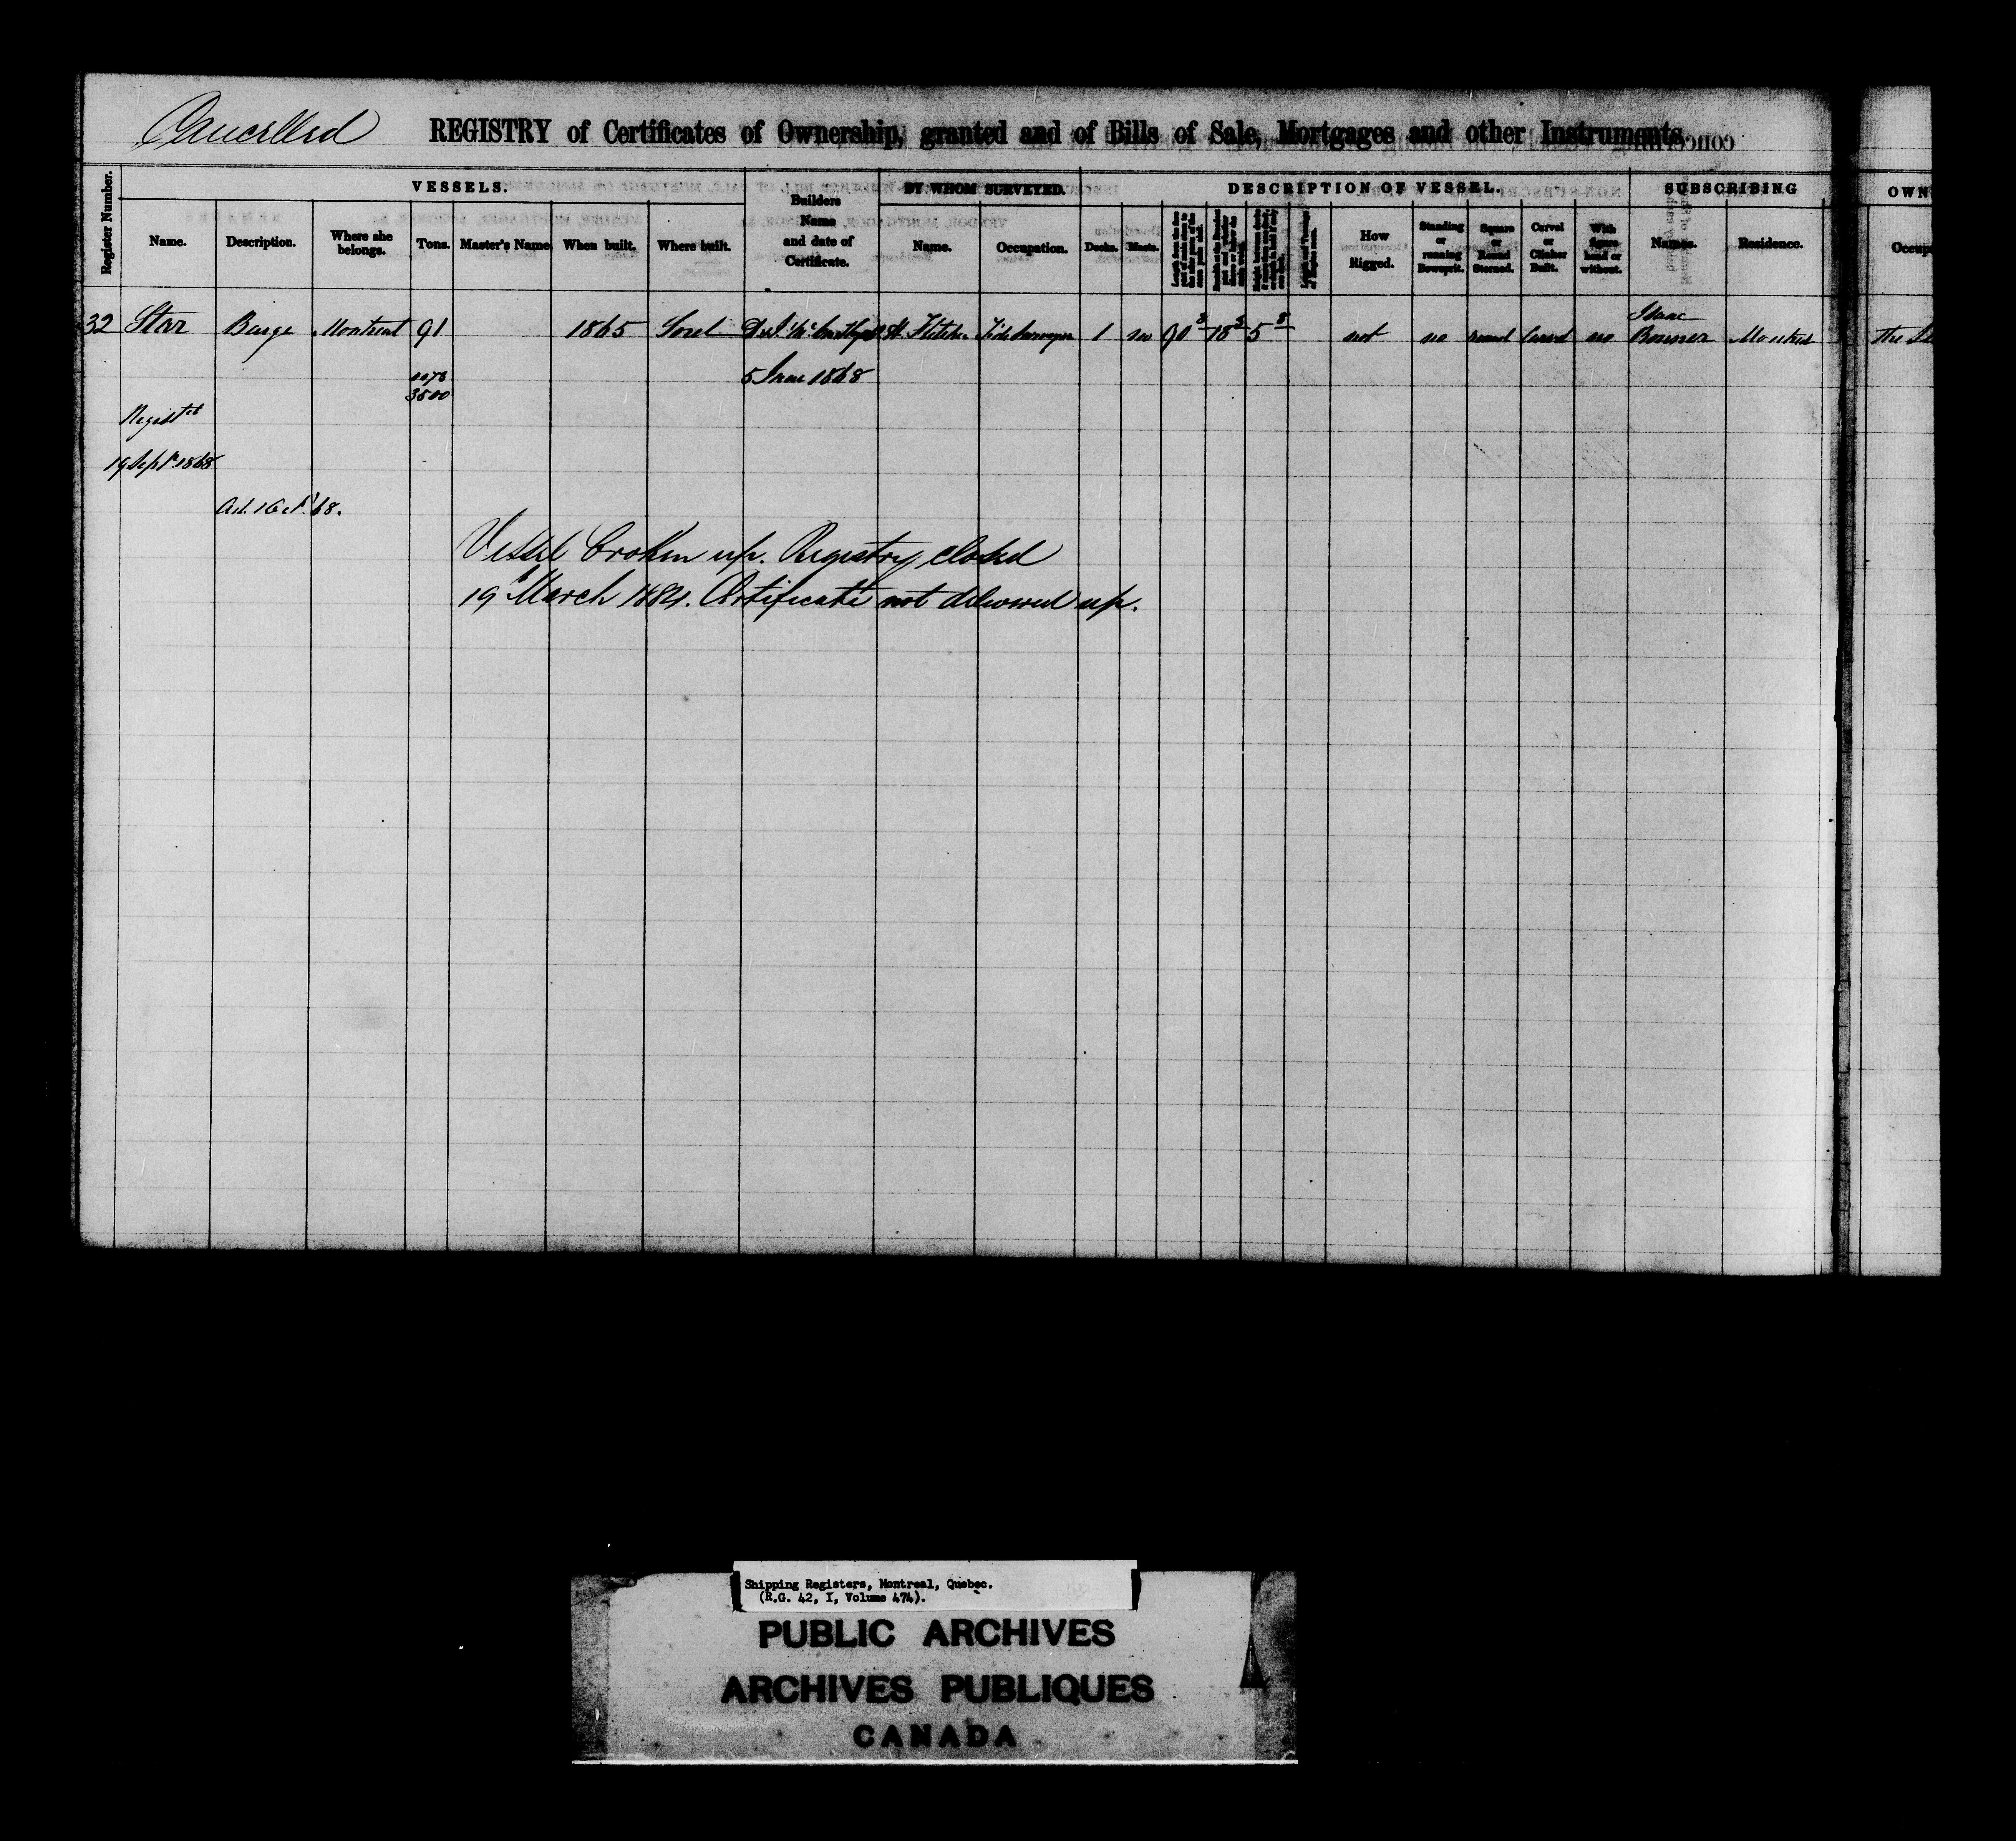 Cancelled REGISTRY of Certificates of Ownership, granted and of Bills of Sale, Mortgages and other Instruments
VESSELS. BY WHOM SURVEYED. DESCRIPTION OF VESSEL. SUBSCRIBING OWN
Register Number. Name. Description. Where she belongs. Tons. Master's Name When built. Where built. Builders Name and date of Certificate. Name. Occupation. Decks. Masts. How Rigged. Standing or running Bowsprit. Square or Round Sterned. Carvel or Clinker Built. With figure head or without. Names. Residence. Occup
32 Star Barge Montreal 91 1865 Sorel 1 no 90 8 18 5 8 not no round Carvel no Isaac Bonner Montreal the
3500 5 June 1868
Regist'd
19 Sept. 1868
Vessel broken up. Registry closed
19 March 1884. Certificate not delivered up.
Shipping Registers, Montreal, Quebec.
(R.G. 42, I, Volume 474).
PUBLIC ARCHIVES
ARCHIVES PUBLIQUES
CANADA